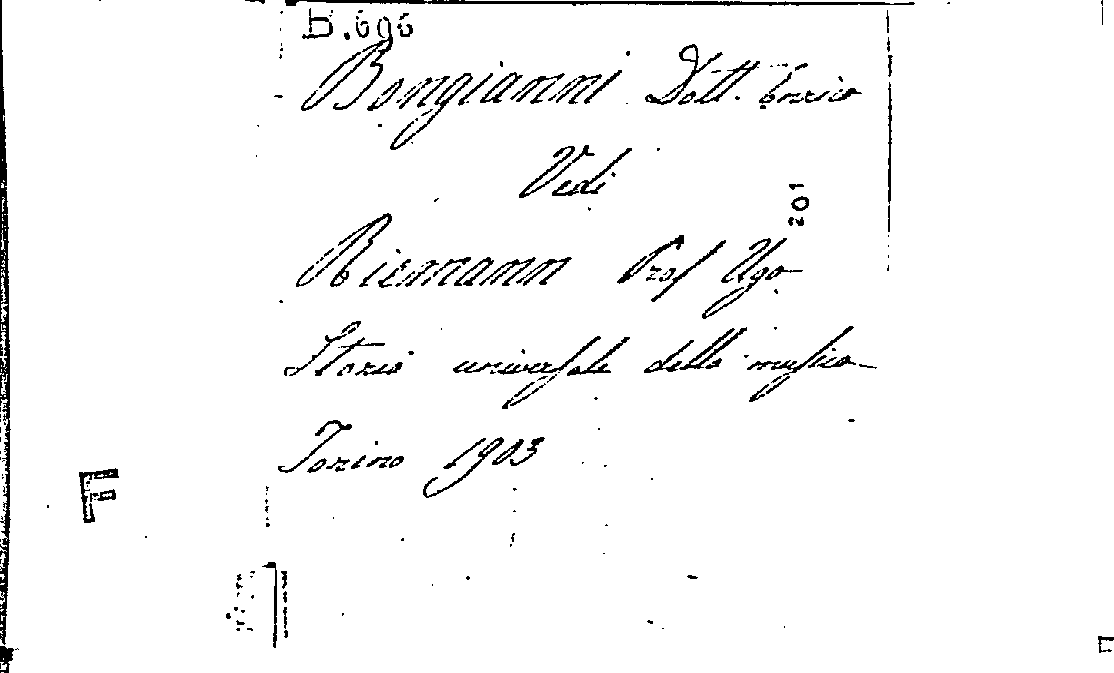 b.696
Bongianni Dott. Enrico
Vedi
201
Riemann Prof Ugo
Storia universale della musica
Torino 1903
F